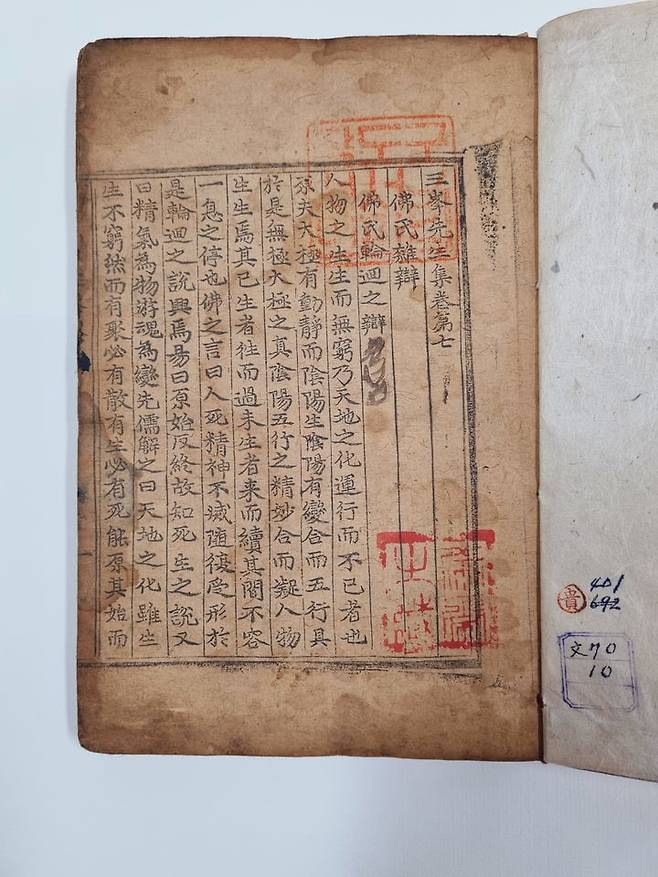 三峯先生集卷第七
佛氏雜辯
佛氏輪廻之辯
人物之生生而無窮乃天地之化運行而不已者也
原夫大極有動靜而陰陽生陰陽有變合而五行具
於是無極大極之真陰陽五行之精妙合而凝人物
生生焉其已生者往而過未生者来而續其間不容
一息之停也佛之言曰人死精神不滅随復受形於
是輪廻之說興焉易曰原始反終故知死生之說又
曰精氣為物游魂為變先儒解之曰天地之化雖生
生不窮然而有聚必有散有生必有死能原其始而
貴
401
692
文70
10